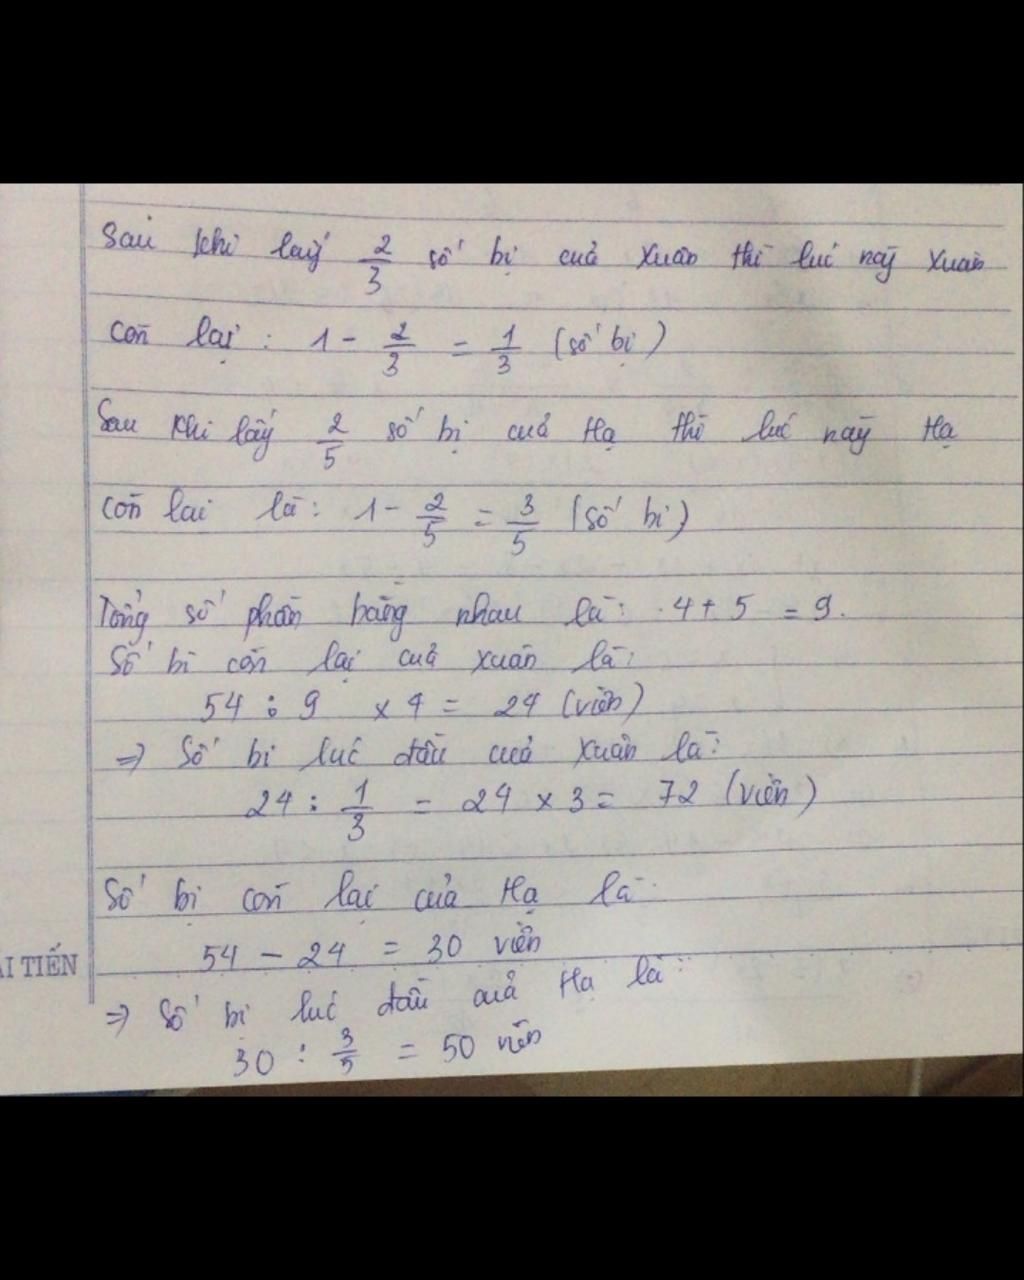 Sau khi lấy 2/3 số bi của Xuân thì lúc này Xuân
còn lại : 1 - 2/3 = 1/3 (số bi)
Sau khi lấy 2/5 số bi của Hạ thì lúc này Hạ
còn lại là: 1 - 2/5 = 3/5 (số bi)
Tổng số phần bằng nhau là: 4 + 5 = 9.
Số bi còn lại của Xuân là:
54 : 9 x 4 = 24 (viên)
=> Số bi lúc đầu của Xuân là:
24 : 1/3 = 24 x 3 = 72 (viên)
Số bi còn lại của Hạ là
54 - 24 = 30 viên
ẢI TIẾN
=> Số bi lúc đầu của Hạ là:
30 : 3/5 = 50 viên